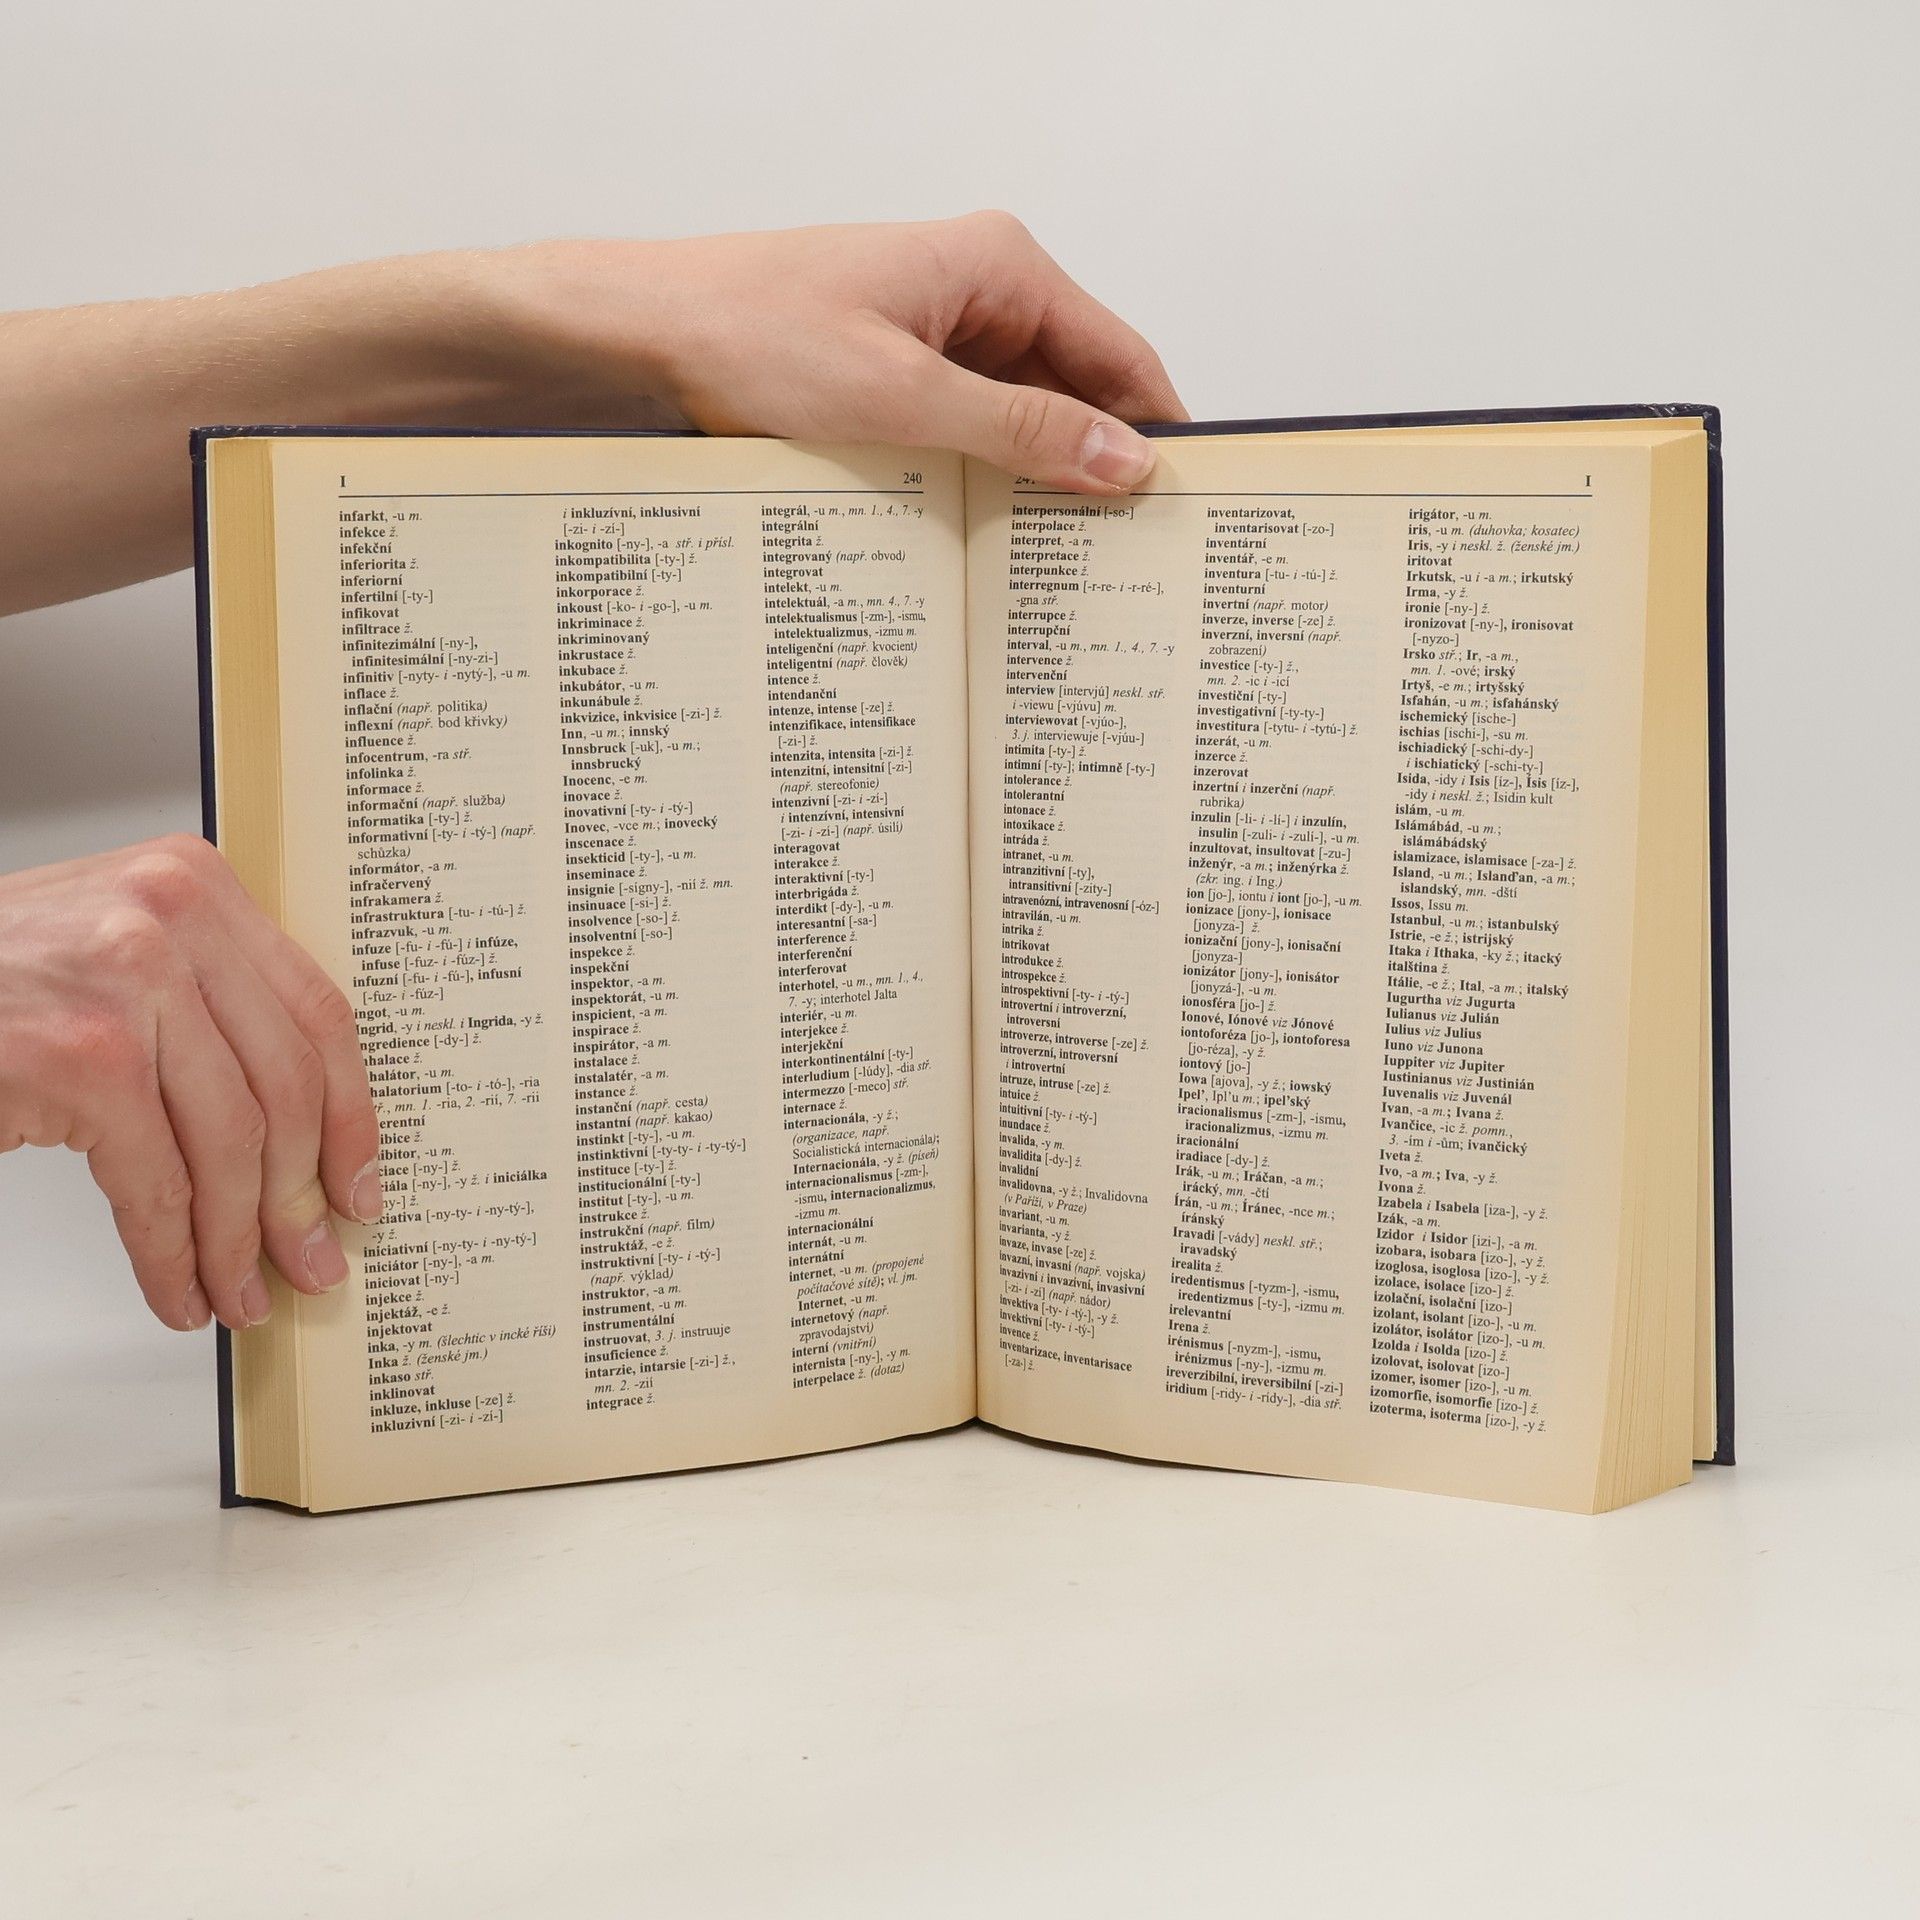 I 240
infarkt, -u m.
infekce ž.
infekční
inferiorita ž.
inferiorní
infertilní [-ty-]
infikovat
infiltrace ž.
infinitezimální [-ny-],
infinitesimální [-ny-zi-]
infinitiv [-nyty- i -nytý-], -u m.
inflace ž.
inflační (např. politika)
inflexní (např. bod křivky)
influence ž.
infocentrum, -ra stř.
infolinka ž.
informace ž.
informační (např. služba)
informatika [-ty-] ž.
informativní [-ty- i -tý-] (např.
schůzka)
informátor, -a m.
infračervený
infrakamera ž.
infrastruktura [-tu- i -tú-] ž.
infrazvuk, -u m.
infuze [-fu- i -fú-] i infúze,
infuse [-fuz- i -fúz-] ž.
infuzní [-fu- i -fú-], infusní
[-fuz- i -fúz-]
ingot, -u m.
Ingrid, -y i neskl. i Ingrida, -y ž.
ngredience [-dy-] ž.
halace ž.
halátor, -u m.
halatorium [-to- i -tó-], -ria
ř., mn. 1. -ria, 2. -rií, 7. -rii
erentní
ibice ž.
ibitor, -u m.
ciace [-ny-] ž.
ciála [-ny-], -y ž. i iniciálka
ny-] ž.
ciativa [-ny-ty- i -ny-tý-],
-y ž.
iniciativní [-ny-ty- i -ny-tý-]
iniciátor [-ny-], -a m.
iniciovat [-ny-]
injekce ž.
injektáž, -e ž.
injektovat
inka, -y m. (šlechtic v incké říši)
Inka ž. (ženské jm.)
inkaso stř.
inklinovat
inkluze, inkluse [-ze] ž.
inkluzivní [-zi- i -zí-]
i inkluzívní, inklusivní
[-zi- i -zí-]
inkognito [-ny-], -a stř. i přísl.
inkompatibilita [-ty-] ž.
inkompatibilní [-ty-]
inkorporace ž.
inkoust [-ko- i -go-], -u m.
inkriminace ž.
inkriminovaný
inkrustace ž.
inkubace ž.
inkubátor, -u m.
inkunábule ž.
inkvizice, inkvisice [-zi-] ž.
Inn, -u m.; innský
Innsbruck [-uk], -u m.;
innsbrucký
Inocenc, -e m.
inovace ž.
inovativní [-ty- i -tý-]
Inovec, -vce m.; inovecký
inscenace ž.
insekticid [-ty-], -u m.
inseminace ž.
insignie [-sígny-], -nií ž. mn.
insinuace [-si-] ž.
insolvence [-so-] ž.
insolventní [-so-]
inspekce ž.
inspekční
inspektor, -a m.
inspektorát, -u m.
inspicient, -a m.
inspirace ž.
inspirátor, -a m.
instalace ž.
instalatér, -a m.
instance ž.
instanční (např. cesta)
instantní (např. kakao)
instinkt [-ty-], -u m.
instinktivní [-ty-ty- i -ty-tý-]
instituce [-ty-] ž.
institucionální [-ty-]
institut [-ty-], -u m.
instrukce ž.
instrukční (např. film)
instruktáž, -e ž.
instruktivní [-ty- i -tý-]
(např. výklad)
instruktor, -a m.
instrument, -u m.
instrumentální
instruovat, 3. j. instruuje
insuficience ž.
intarzie, intarsie [-zi-] ž.,
mn. 2. -zií
integrace ž.
integrál, -u m., mn. 1., 4., 7. -y
integrální
integrita ž.
integrovaný (např. obvod)
integrovat
intelekt, -u m.
intelektuál, -a m., mn. 4., 7. -y
intelektualismus [-zm-], -ismu,
intelektualizmus, -izmu m.
inteligenční (např. kvocient)
inteligentní (např. člověk)
intence ž.
intendanční
intenze, intense [-ze] ž.
intenzifikace, intensifikace
[-zi-] ž.
intenzita, intensita [-zi-] ž.
intenzitní, intensitní [-zi-]
(např. stereofonie)
intenzivní [-zi- i -zí-]
i intenzívní, intensivní
[-zi- i -zí-] (např. úsilí)
interagovat
interakce ž.
interaktivní [-ty-]
interbrigáda ž.
interdikt [-dy-], -u m.
interesantní [-sa-]
interference ž.
interferenční
interferovat
interhotel, -u m., mn. 1., 4.,
7. -y; interhotel Jalta
interiér, -u m.
interjekce ž.
interjekční
interkontinentální [-ty-]
interludium [-lúdy], -dia stř.
intermezzo [-meco] stř.
internace ž.
internacionála, -y ž.;
(organizace, např.
Socialistická internacionála);
Internacionála, -y ž. (píseň)
internacionalismus [-zm-],
-ismu, internacionalizmus,
-izmu m.
internacionální
internát, -u m.
internátní
internet, -u m. (propojené
počítačové sítě); vl. jm.
Internet, -u m.
internetový (např.
zpravodajství)
interní (vnitřní)
internista [-ny-], -y m.
interpelace ž. (dotaz)
241 I
interpersonální [-so-]
interpolace ž.
interpret, -a m.
interpretace ž.
interpunkce ž.
interregnum [-r-re- i -r-ré-],
-gna stř.
interrupce ž.
interrupční
interval, -u m., mn. 1., 4., 7. -y
intervence ž.
intervenční
interview [intervjú] neskl. stř.
i -viewu [-vjúvu] m.
interviewovat [-vjúo-],
3. j. interviewuje [-vjúu-]
intimita [-ty-] ž.
intimní [-ty-]; intimně [-ty-]
intolerance ž.
intolerantní
intonace ž.
intoxikace ž.
intráda ž.
intranet, -u m.
intranzitní [-ty],
intransitivní [-zity-]
intravenózní, intravenosní [-óz-]
intravilán, -u m.
intrika ž.
intrikovat
introdukce ž.
introspekce ž.
introspektivní [-ty- i -tý-]
introvertní i introverzní,
introversní
introverze, introverse [-ze] ž.
introverzní, introversní
i introvertní
intruze, intruse [-ze] ž.
intuice ž.
intuitivní [-ty- i -tý-]
inundace ž.
invalida, -y m.
invalidita [-dy-] ž.
invalidní
invalidovna, -y ž.; Invalidovna
(v Paříži, v Praze)
invariant, -u m.
invarianta, -y ž.
invaze, invase [-ze] ž.
invazní, invasní (např. vojska)
invazivní i invazívní, invasivní
[-zi- i -zí] (např. nádor)
invektiva [-ty- i -tý-], -y ž.
invektivní [-ty- i -tý-]
invence ž.
inventarizace, inventarisace
[-za-] ž.
inventarizovat,
inventarisovat [-zo-]
inventární
inventář, -e m.
inventura [-tu- i -tú-] ž.
inventurní
invertní (např. motor)
inverze, inverse [-ze] ž.
inverzní, inversní (např.
zobrazení)
investice [-ty-] ž.,
mn. 2. -ic i -icí
investiční [-ty-]
investigativní [-ty-ty-]
investitura [-tytu- i -tytú-] ž.
inzerát, -u m.
inzerce ž.
inzerovat
inzertní i inzerční (např.
rubrika)
inzulin [-li- i -lí-] i inzulín,
insulin [-zuli- i -zulí-], -u m.
inzultovat, insultovat [-zu-]
inženýr, -a m.; inženýrka ž.
(zkr. ing. i Ing.)
ion [jo-], iontu i iont [jo-], -u m.
ionizace [jony-], ionisace
[jonyza-] ž.
ionizační [jony-], ionisační
[jonyza-]
ionizátor [jony-], ionisátor
[jonyzá-], -u m.
ionosféra [jo-] ž.
Ionové, Iónové viz Jónové
iontoforéza [jo-], iontoforesa
[jo-réza], -y ž.
iontový [jo-]
Iowa [ajova], -y ž.; iowský
Ipel’, Ipl’u m.; ipel’ský
iracionalismus [-zm-], -ismu,
iracionalizmus, -izmu m.
iracionální
iradiace [-dy-] ž.
Irák, -u m.; Iráčan, -a m.;
irácký, mn. -čtí
Írán, -u m.; Íránec, -nce m.;
íránský
Iravadi [-vády] neskl. stř.;
iravadský
irealita ž.
iredentismus [-tyzm-], -ismu,
iredentizmus [-ty-], -izmu m.
irelevantní
Irena ž.
irénismus [-nyzm-], -ismu,
irénizmus [-ny-], -izmu m.
ireverzibilní, ireversibilní [-zi-]
iridium [-ridy- i -rídy-], -dia stř.
irigátor, -u m.
iris, -u m. (duhovka; kosatec)
Iris, -y i neskl. ž. (ženské jm.)
iritovat
Irkutsk, -u i -a m.; irkutský
Irma, -y ž.
ironie [-ny-] ž.
ironizovat [-ny-], ironisovat
[-nyzo-]
Irsko stř.; Ir, -a m.,
mn. 1. -ové; irský
Irtyš, -e m.; irtyšský
Isfahán, -u m.; isfahánský
ischemický [ische-]
ischias [ischi-], -su m.
ischiadický [-schi-dy-]
i ischiatický [-schi-ty-]
Isida, -idy i Isis [íz-], Ísis [íz-],
-idy i neskl. ž.; Isidin kult
islám, -u m.
Islámábád, -u m.;
islámábádský
islamizace, islamisace [-za-] ž.
Island, -u m.; Islanďan, -a m.;
islandský, mn. -dští
Issos, Issu m.
Istanbul, -u m.; istanbulský
Istrie, -e ž.; istrijský
Itaka i Ithaka, -ky ž.; itacký
italština ž.
Itálie, -e ž.; Ital, -a m.; italský
Iugurtha viz Jugurta
Iulianus viz Julián
Iulius viz Julius
Iuno viz Junona
Iuppiter viz Jupiter
Iustinianus viz Justinián
Iuvenalis viz Juvenál
Ivan, -a m.; Ivana ž.
Ivančice, -ic ž. pomn.,
3. -ím i -ům; ivančický
Iveta ž.
Ivo, -a m.; Iva, -y ž.
Ivona ž.
Izabela i Isabela [iza-], -y ž.
Izák, -a m.
Izidor i Isidor [izi-], -a m.
izobara, isobara [izo-], -y ž.
izoglosa, isoglosa [izo-], -y ž.
izolace, isolace [izo-] ž.
izolační, isolační [izo-]
izolant, isolant [izo-], -u m.
izolátor, isolátor [izo-], -u m.
Izolda i Isolda [izo-] ž.
izolovat, isolovat [izo-]
izomer, isomer [izo-], -u m.
izomorfie, isomorfie [izo-] ž.
izoterma, isoterma [izo-], -y ž.